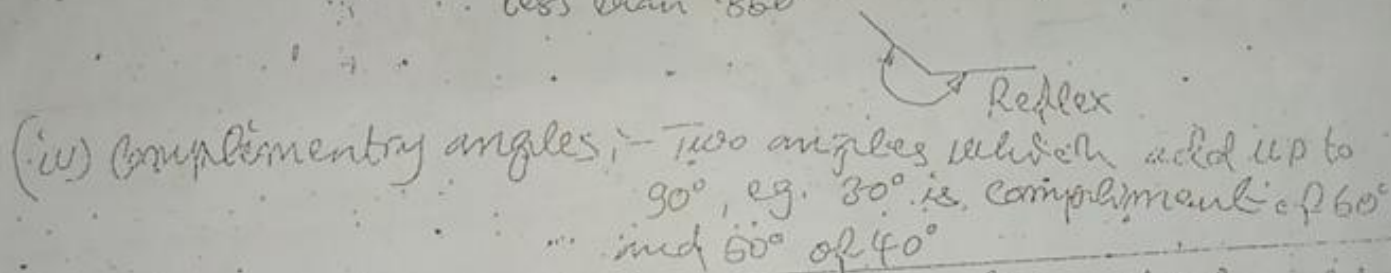 less than 360
Reflex
(iv) Complimentry angles;- Two angles which add up to
90°, eg. 30° is compliment of 60°
and 50° of 40°